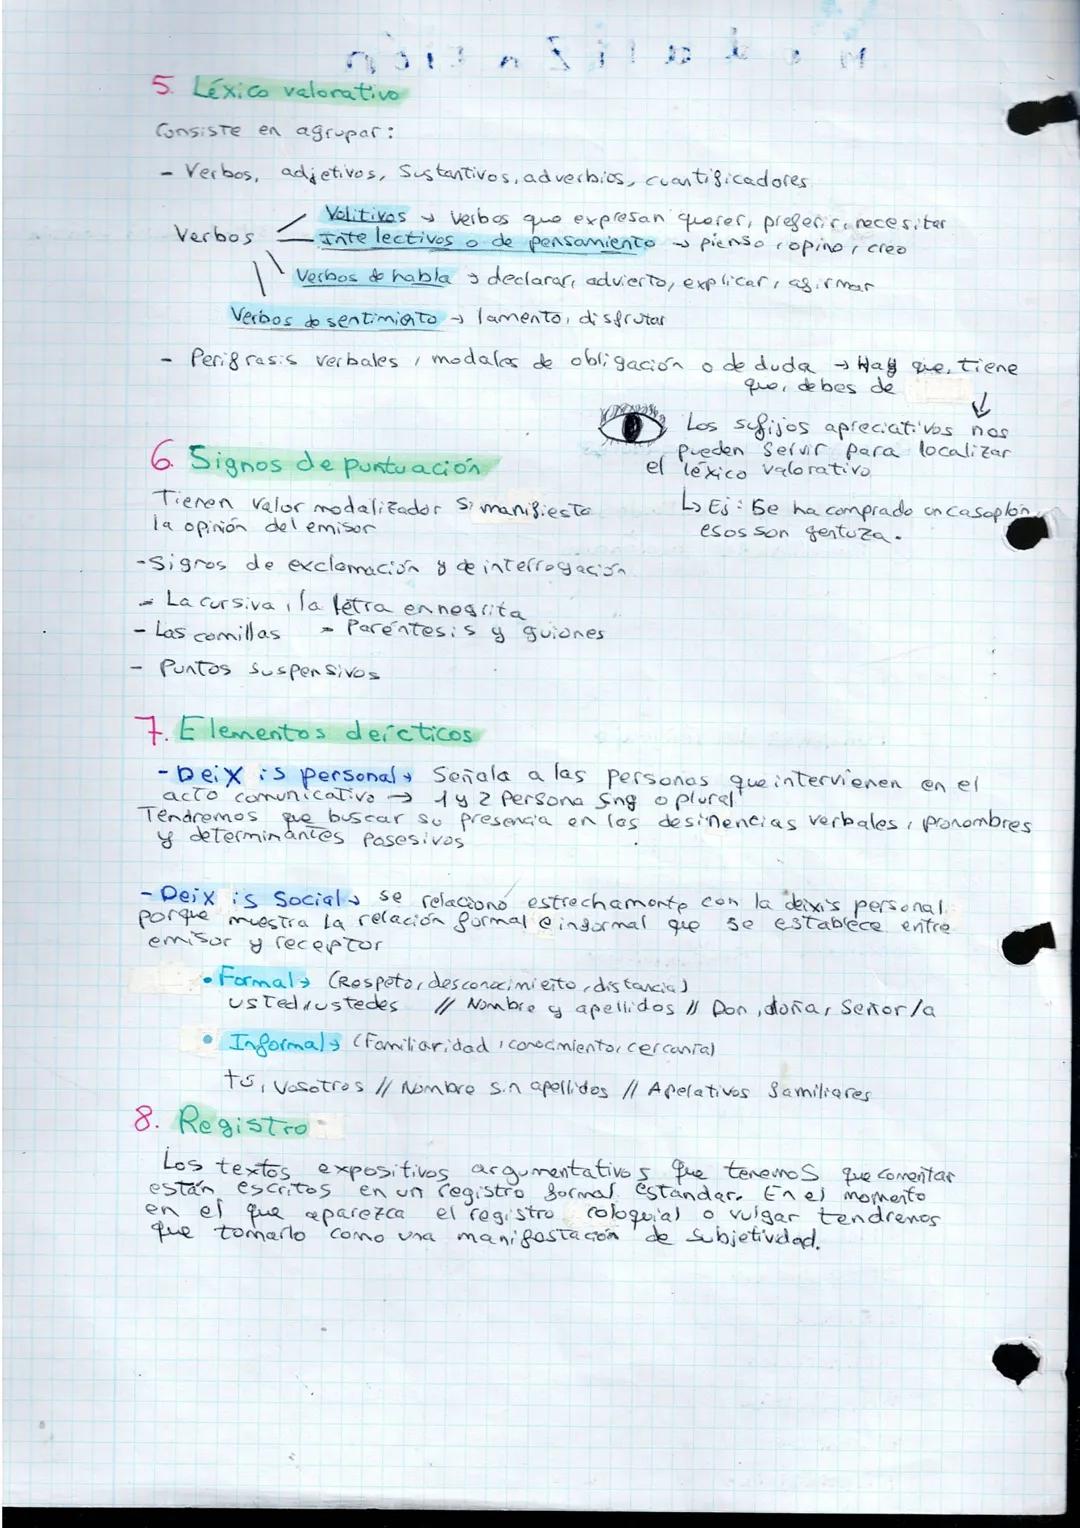 5. Léxico valorativo
Consiste en agrupar:
- Verbos, adjetivos, Sustantivos, adverbios, cuantificadores
Verbos
Volitivos → verbos que expresan querer, preferir, necesitar
Intelectivos o de pensamiento → pienso, opino, creo
Verbos de habla → declarar, advierto, explicar, afirmar
Verbos de sentimiento → lamento, disfrutar
- Perifrasis verbales, modales de obligación o de duda → Hay que, tiene
que, debes de
Los sufijos apreciativos nos
pueden servir para localizar
el léxico valorativo
↳ Ej: Se ha comprado un casoplón,
esos son gentuza.
6. Signos de puntuación
Tienen valor modalizador si manifiesta
la opinión del emisor
- Signos de exclamación y de interrogación
- La cursiva, la letra en negrita
- Las comillas - Paréntesis y guiones
- Puntos suspensivos
7. Elementos deícticos
- Deixis personal → Señala a las personas que intervienen en el
acto comunicativo → 1 y 2 Persona sng o plural
Tendremos que buscar su presencia en las desinencias verbales, pronombres
y determinantes posesivos
- Deixis Social → se relaciona estrechamente con la deixis personal
porque muestra la relación formal e informal que se establece entre
emisor y receptor
• Formal → (Respeto, desconocimiento, distancia)
usted, ustedes // Nombre y apellidos // Don, doña, Señor/a
• Informal → (Familiaridad, conocimiento, cercanía)
tú, Vosotros // Nombre sin apellidos // Apelativos familiares
8. Registro
Los textos expositivos argumentativos que tenemos que comentar
están escritos en un registro formal estándar. En el momento
en el que aparezca el registro coloquial o vulgar tendremos
que tomarlo como una manifestación de subjetividad.